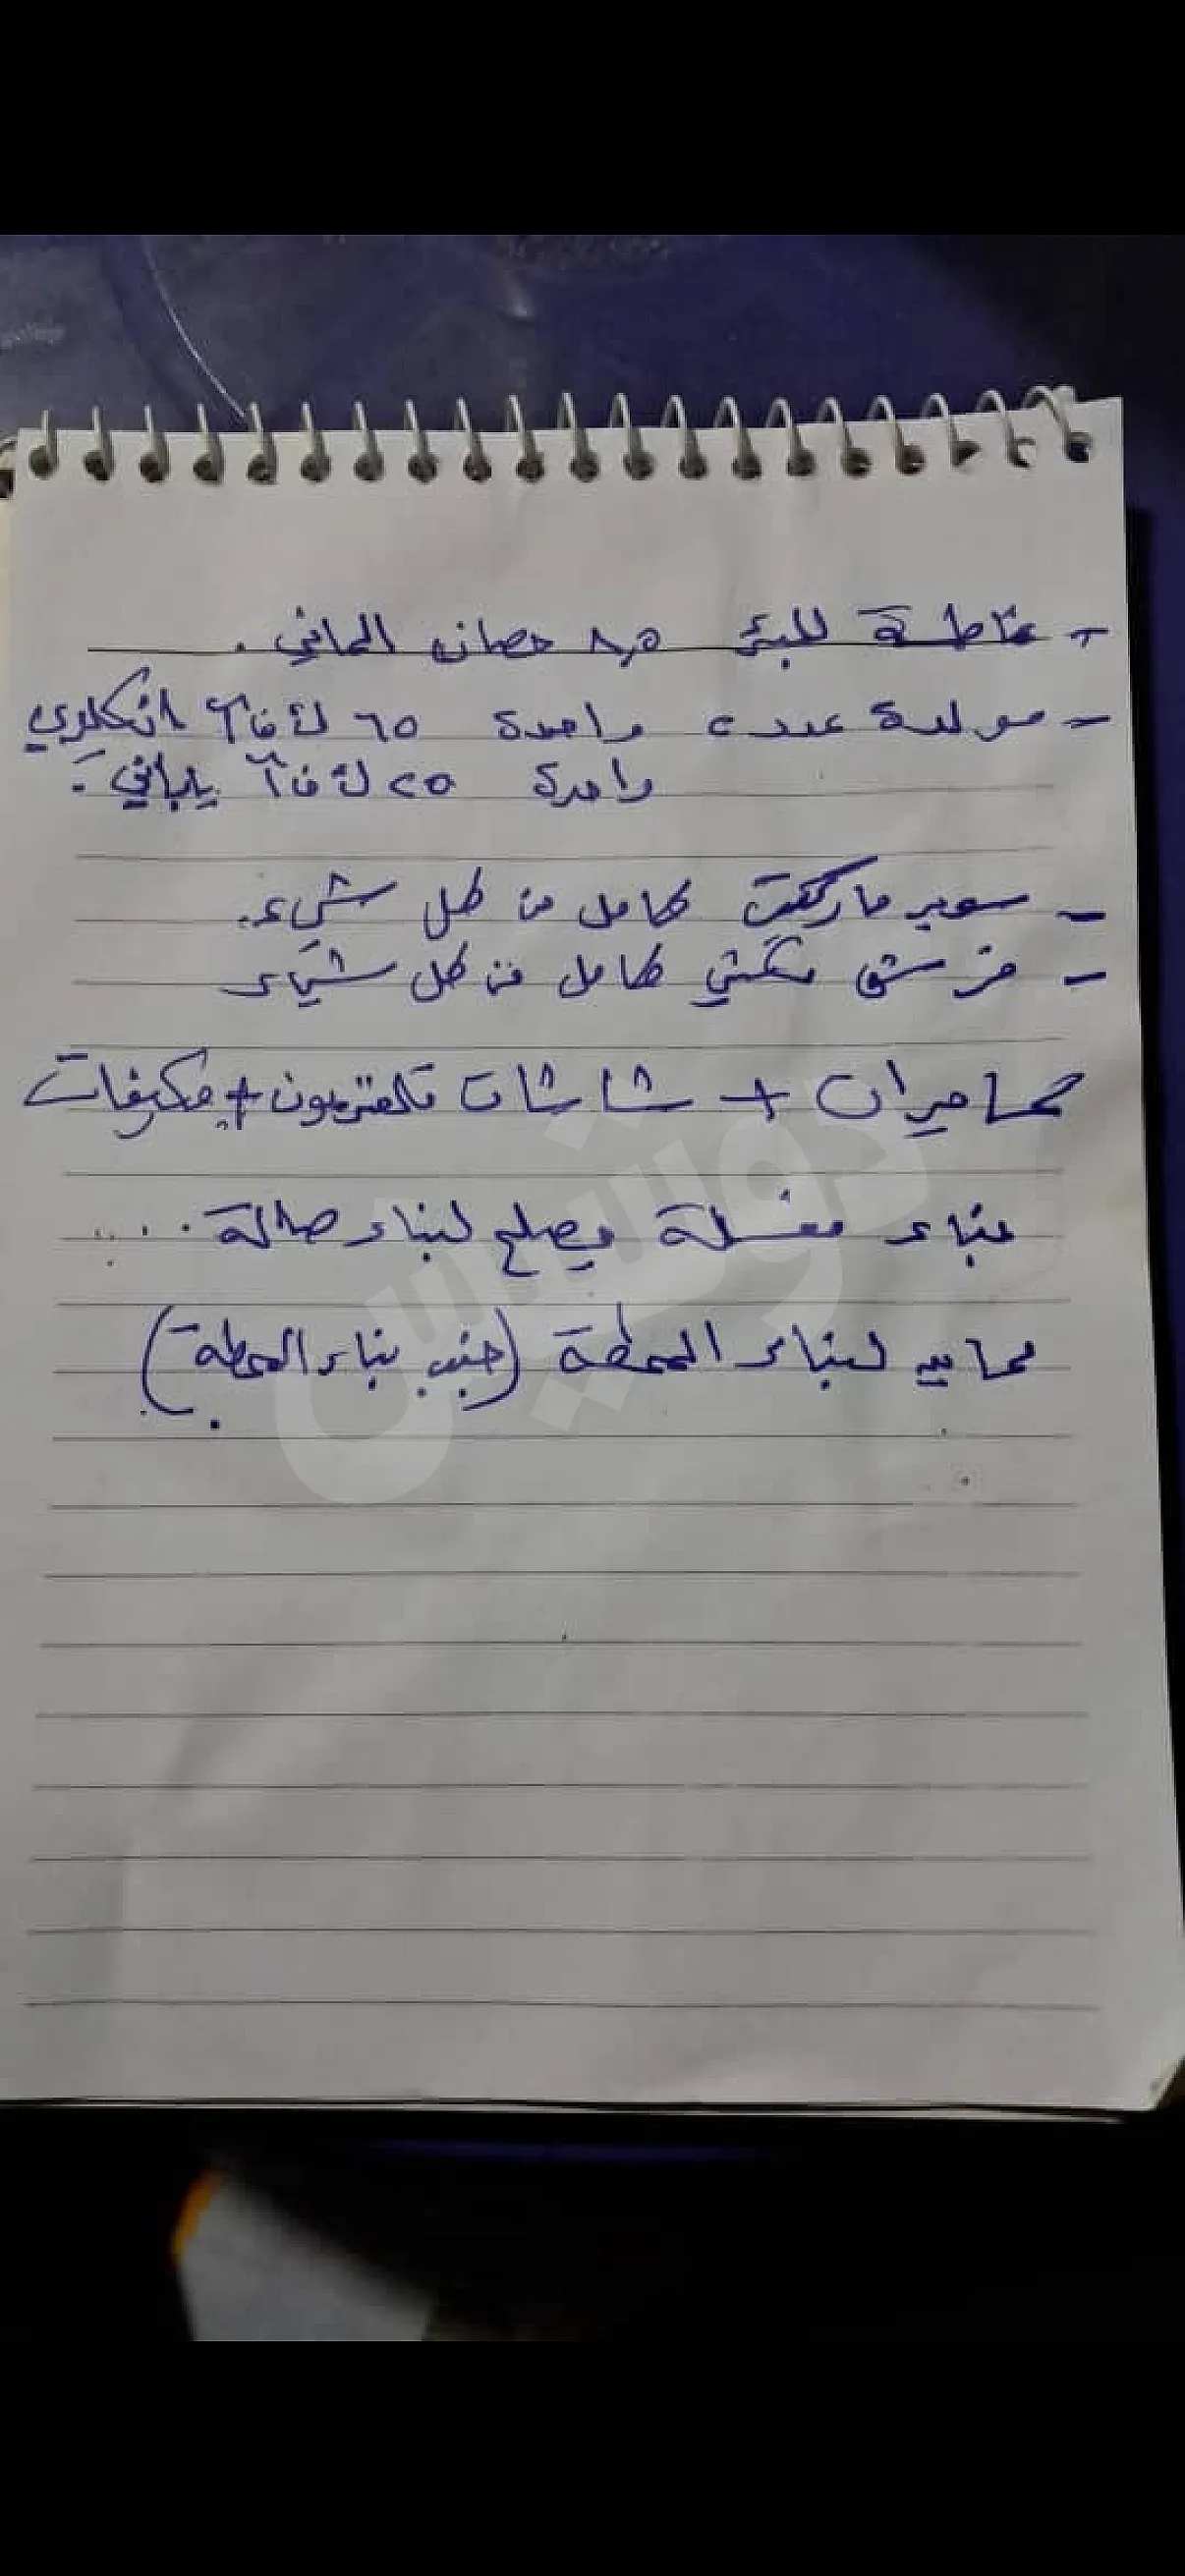 - غاطسة للبئر ٨,٥ حصان الماني .
- مولدة عدد ٢ واحدة ٦٥ ك ف آ انكليزي
واحدة ٢٥ ك ف آ ياباني .
- سوبر ماركت كامل من كل شيء .
- فرش مكتبي كامل من كل شيء
كاميرات + شاشات تلفزيون + مكيفات
بناء مغسلة يصلح لبناء صالة ....
محاذيه لبناء المحطة (جنب بناء المحطة)